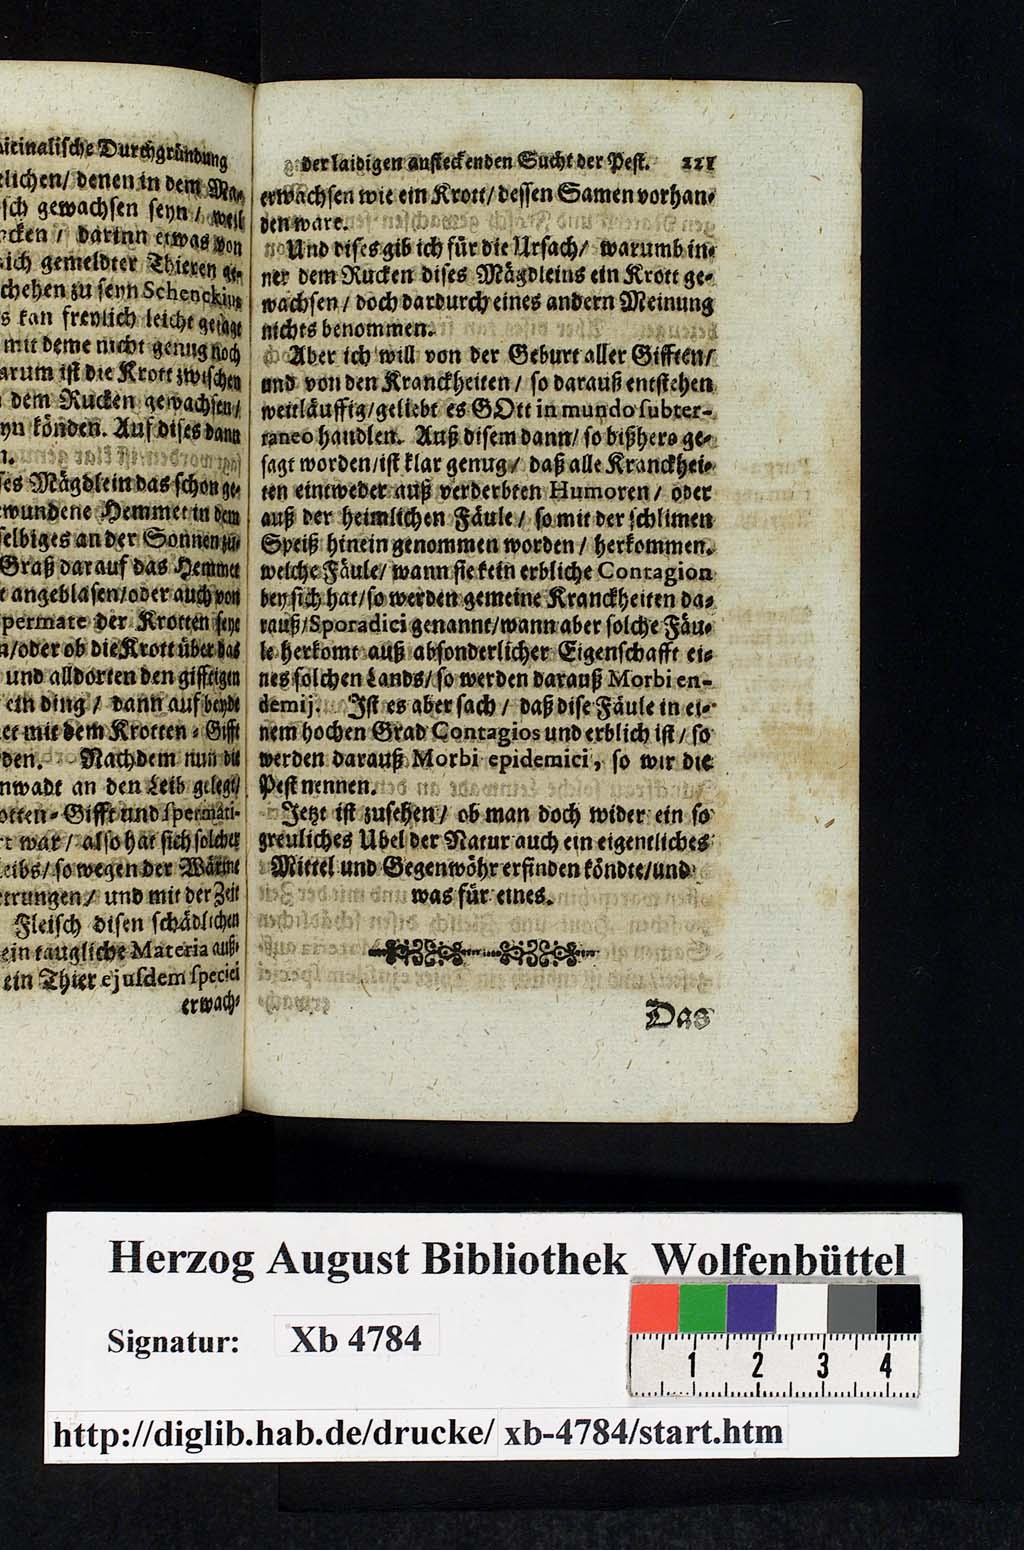 Durchgründung
denen in dem Ma-
sch gewachsen seyn / weil
darinn etwas von
gemeldter Thieren ge-
zu seyn Schenckius
kan freylich leicht gesagt
mit deme nicht genug noch
arum ist die Krott zwischen
dem Rucken gewachsen /
könden. Auf dises dann
n.
ses Mägdlein das schon ge-
wundene Hemmet in dem
selbiges an der Sonnen zu-
Graß darauf das Hemmet
angeblasen / oder auch von
spermate der Krotten seye
n / oder ob die Krott über das
und alldorten den gifftigen
ein ding / dann auf beyde
et mit dem Krotten-Gifft
den. Nachdem nun die
nwadt an den Leib gelegt /
otten-Gifft und spermati-
rt war / also hat sich solcher
eibs / so wegen der Wärme
etrungen / und mit der Zeit
Fleisch disen schädlichen
ein taugliche Materia auß-
ein Thier ejusdem speciei
erwach-
der laidigen ansteckenden Sucht der Pest. 221
erwachsen wie ein Krott / dessen Samen vorhan-
den ware.
Und dises gib ich für die Ursach / warumb in-
ner dem Rucken dises Mägdleins ein Krott ge-
wachsen / doch dardurch eines andern Meinung
nichts benommen.
Aber ich will von der Geburt aller Gifften /
und von den Kranckheiten / so darauß entstehen
weitläuffig / geliebt es GOtt in mundo subter-
raneo handlen. Auß disem dann / so bißhero ge-
sagt worden / ist klar genug / daß alle Kranckhei-
ten eintweder auß verderbten Humoren / oder
auß der heimlichen Fäule / so mit der schlimen
Speiß hinein genommen worden / herkommen.
welche Fäule / wann sie kein erbliche Contagion
bey sich hat / so werden gemeine Kranckheiten da-
rauß / Sporadici genannt / wann aber solche Fäu-
le herkomt auß absonderlicher Eigenschafft ei-
nes solchen Lands / so werden darauß Morbi en-
demij. Ist es aber sach / daß dise Fäule in ei-
nem hochen Grad Contagios und erblich ist / so
werden darauß Morbi epidemici, so wir die
Pest nennen.
Jetzt ist zusehen / ob man doch wider ein so
greuliches Ubel der Natur auch ein eigentliches
Mittel und Gegenwöhr erfinden köndte / und
was für eines.
Das
Herzog August Bibliothek Wolfenbüttel
Signatur: Xb 4784
1 2 3 4
http://diglib.hab.de/drucke/ xb-4784/start.htm